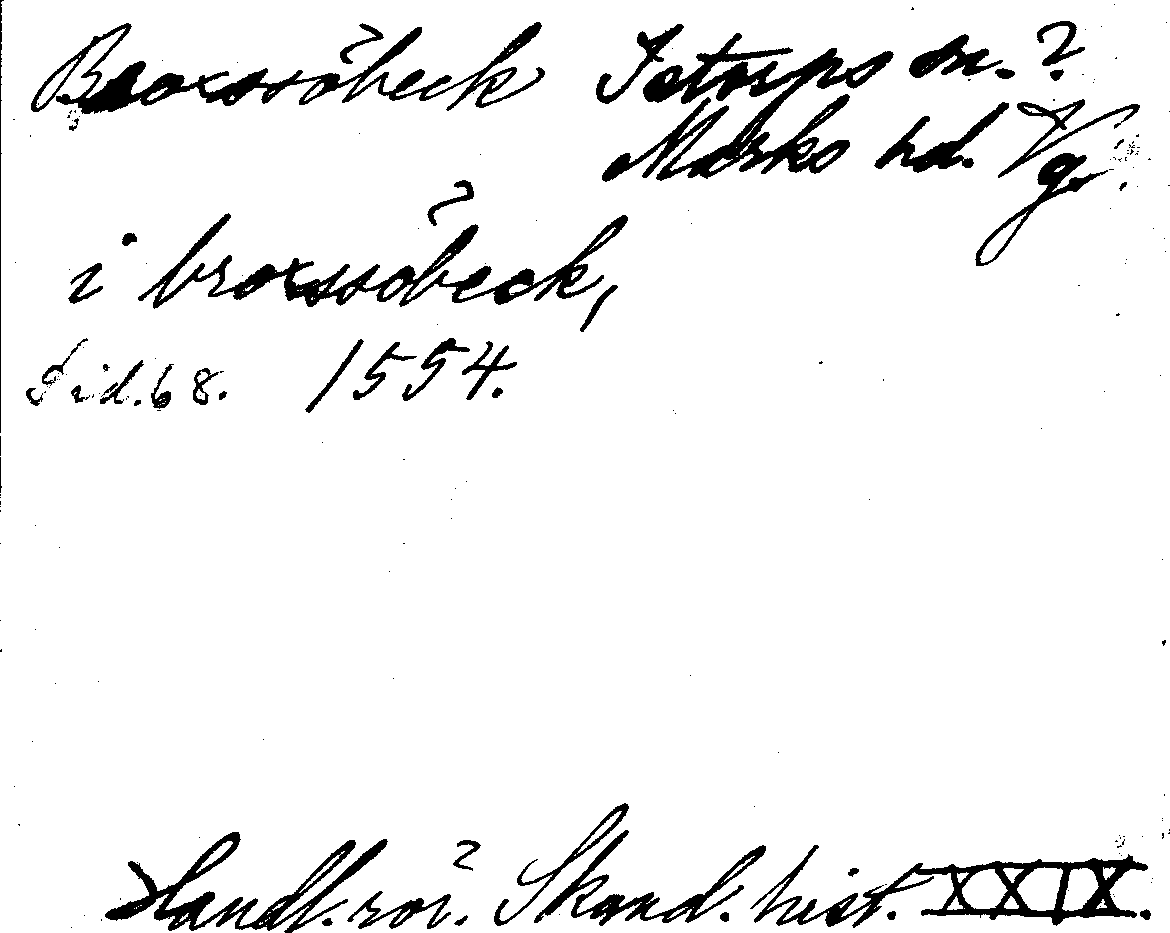 Broxssöbeck Istorps sn. ?
Marks hd. Vg.
i broxssöbeck,
Sid. 68. 1554.
Handl. rör. Skand. hist. XXIX.